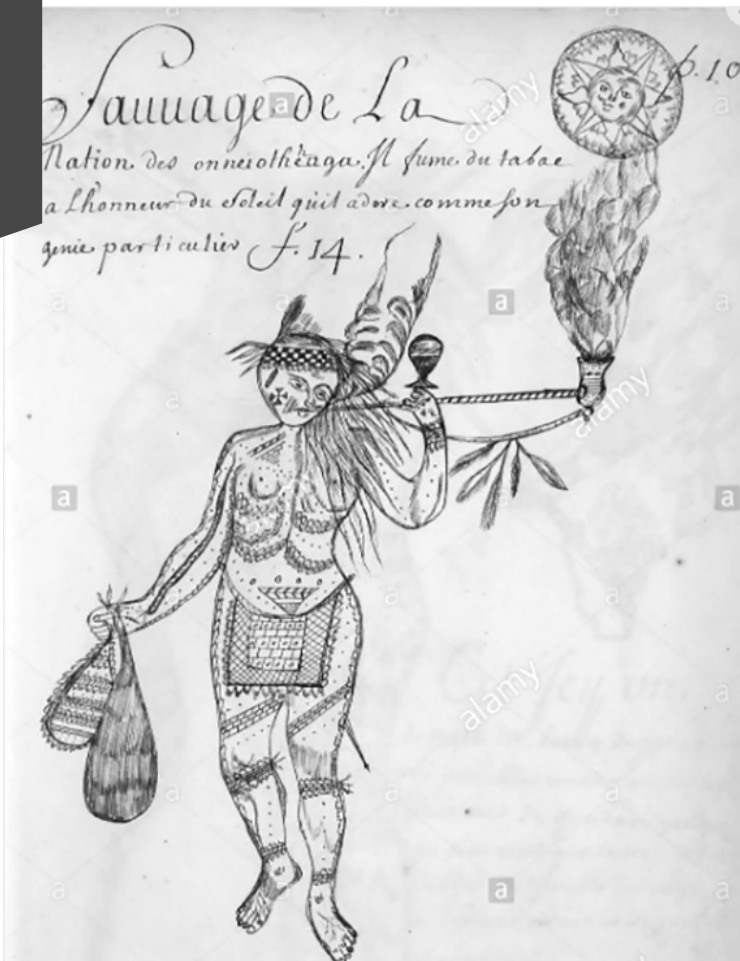 Sauuage de La
p. 10
Nation des onneiothéaga. Il fume du tabac
a Lhonneur du Soleil qu'il adore comme son
genie particulier f. 14.
alamy
alamy
alamy